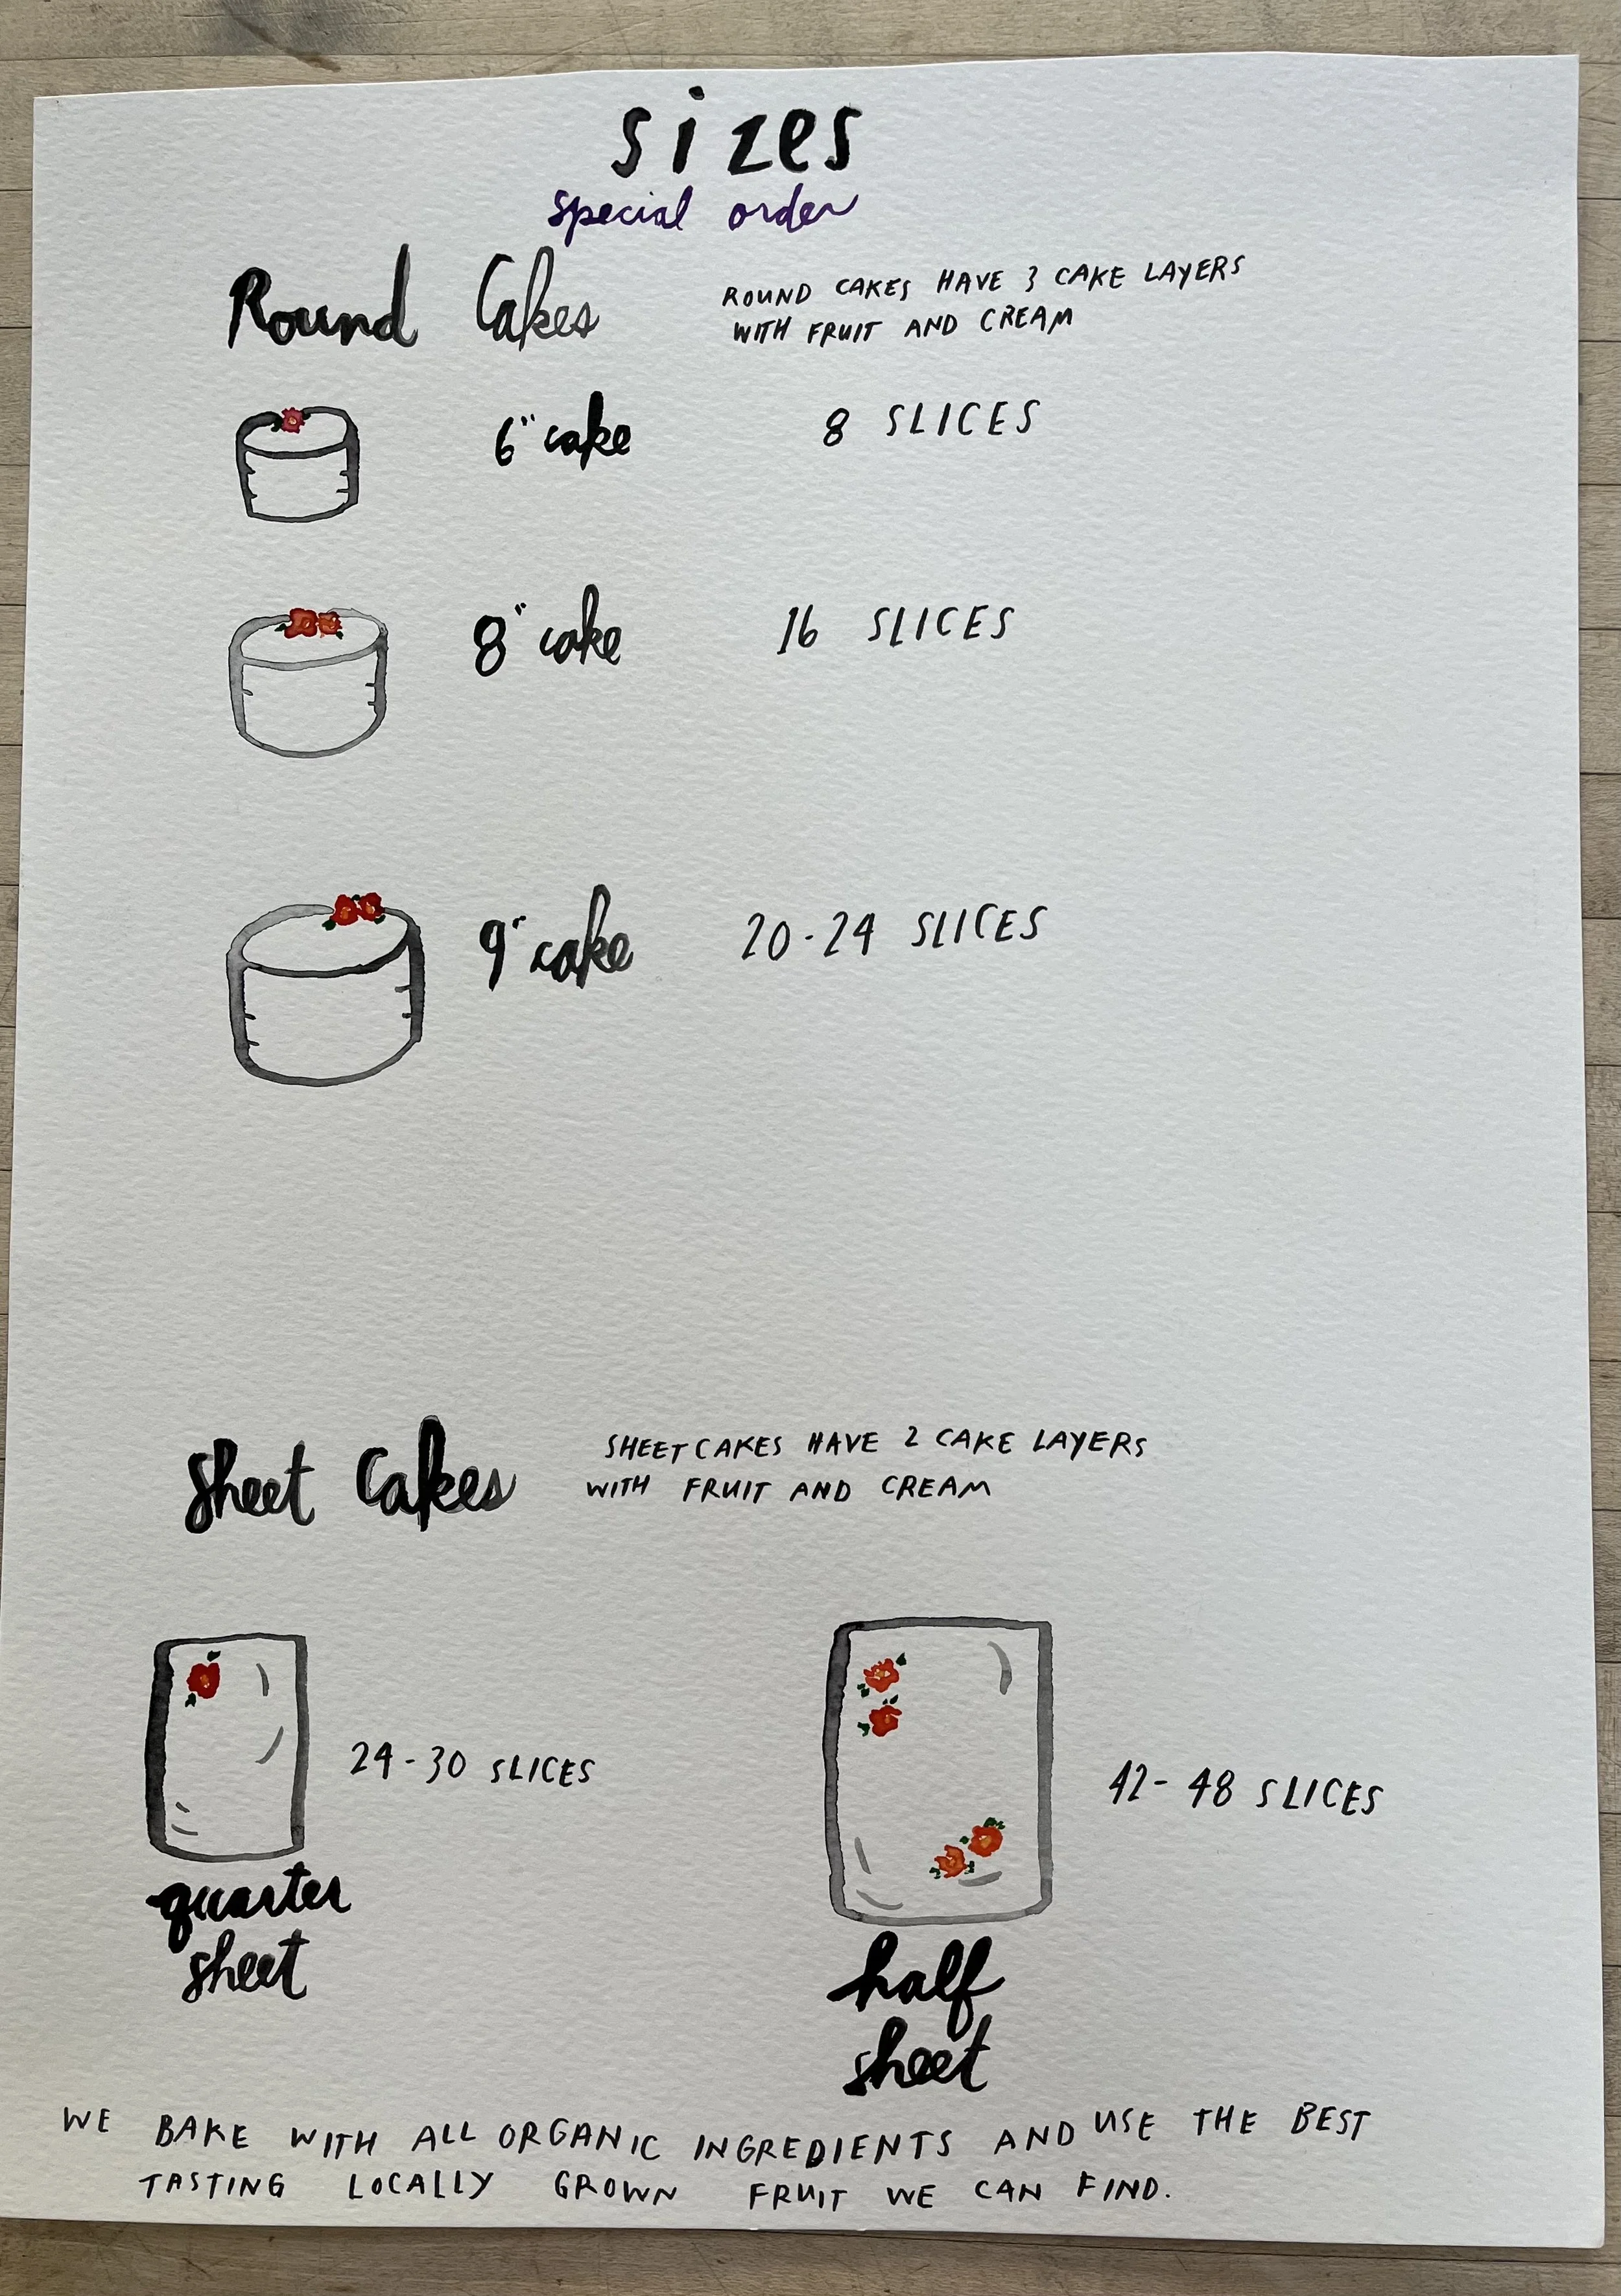 sizes
special order
Round Cakes
ROUND CAKES HAVE 3 CAKE LAYERS
WITH FRUIT AND CREAM
6" cake 8 SLICES
8" cake 16 SLICES
9" cake 20-24 SLICES
Sheet Cakes
SHEET CAKES HAVE 2 CAKE LAYERS
WITH FRUIT AND CREAM
24-30 SLICES
quarter
sheet
42-48 SLICES
half
sheet
WE BAKE WITH ALL ORGANIC INGREDIENTS AND USE THE BEST
TASTING LOCALLY GROWN FRUIT WE CAN FIND.